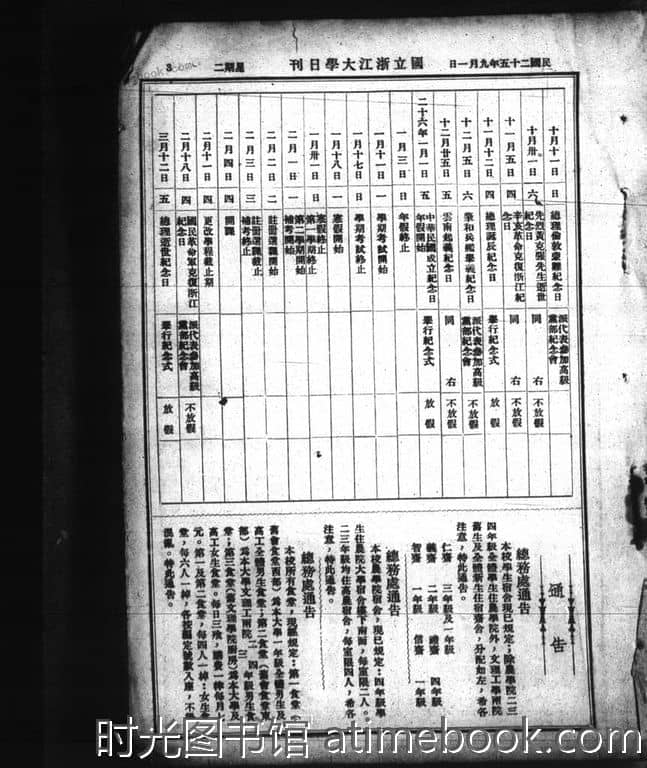 民國二十五年九月一日
國立浙江大學日刊
星期二
3
十月十一日 日 總理倫敦蒙難紀念日 派代表參加高級黨部紀念會 不放假
十月卅一日 六 先烈黃克強先生逝世紀念日 同 右 不放假
十一月五日 四 辛亥革命克復浙江紀念日 同 右 不放假
十一月十二日 四 總理誕辰紀念日 舉行紀念式 放假
十二月五日 六 肇和兵艦舉義紀念日 派代表參加高級黨部紀念會 不放假
十二月廿五日 五 雲南起義紀念日 同 右 不放假
二十六年一月一日 五 中華民國成立紀念日 年假開始 舉行紀念式 放假
一月三日 日 年假終止
一月十一日 一 學期考試開始
一月十七日 日 學期考試終止
一月十八日 一 寒假開始
一月卅一日 日 寒假終止 第一學期終止
二月一日 一 第二學期開始 補考開始
二月二日 二 註冊選課開始
二月三日 三 註冊選課截止 補考終止
二月四日 四 開課
二月十一日 四 更改學程截止期
二月十八日 四 國民革命軍克復浙江紀念日 派代表參加高級黨部紀念會 不放假
三月十二日 五 總理逝世紀念日 舉行紀念式 放假
通告
總務處通告
本校學生宿舍現已規定;除農學院二三
四年級全體學生住農學院外,文理工學兩院
舊生及全體新生住宿齋舍,分配如左,希各
注意,特此通告。
仁齋 三年級及一年級
義齋 二年級 禮齋 四年級
智齋 一年級 信齋 一年級
總務處通告
本校農學院宿舍,現已規定:四年級學
生住農院大學宿舍樓下南面,每室限二人。
二三年級均住高農宿舍,每室限四人,希各
注意,特此通告。
總務處通告
本校所有食堂,現經規定:第一食堂(
舊會食堂西部)為本大學一年級全體男生及
高工全體男生食堂;第二食堂(舊會食堂東
部)為本大學文理工兩院二、三、四年級男生食
堂;第三食堂(舊文理學院廚房)為本大學及
高工女生食堂。每日三飧,膳費一律每月
元。第一及第二食堂,每四人一棹;女生食
堂,每六人一棹,各按編定號數入座,不
混亂。特此通告。
时光图书馆 atimebook.com